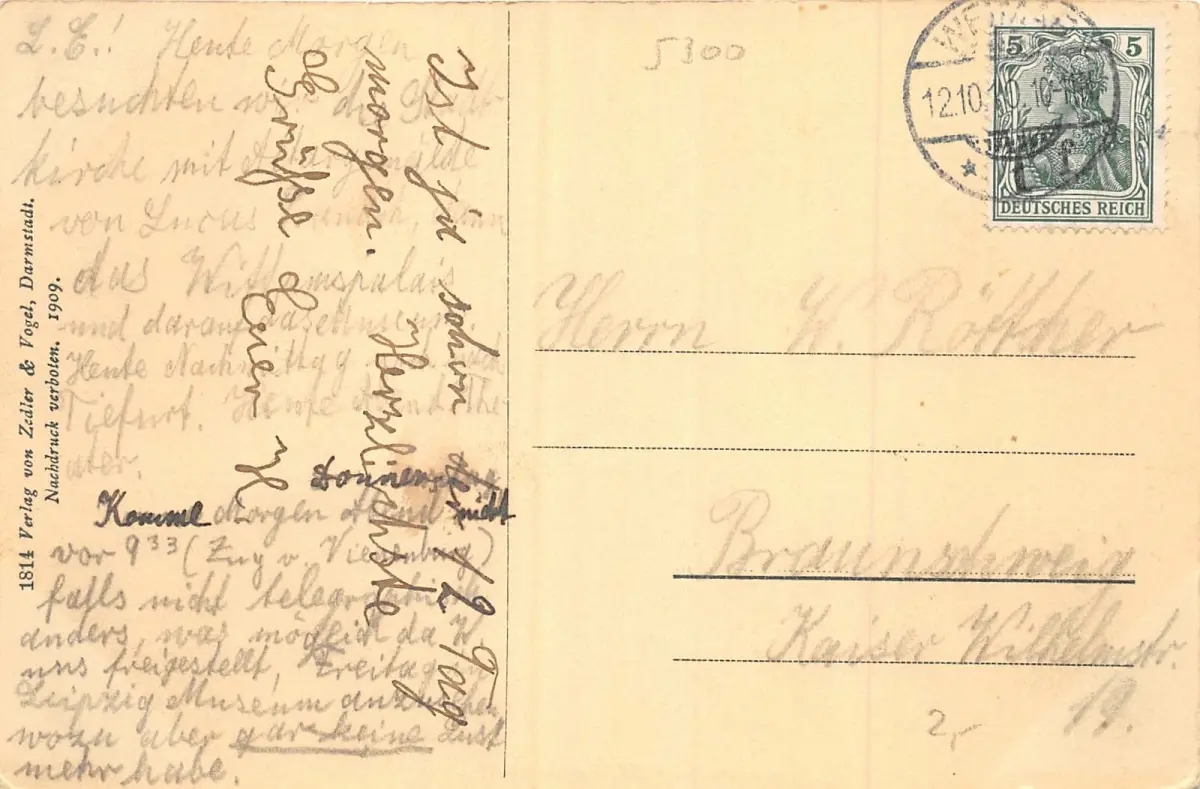 L. E.! Heute Morgen
besuchten wir die Stadt-
kirche mit Altargemälde
von Lucas dann
das Wittumspalais
und darauf das Museum.
Heute Nachmittag
Tiefurt. Heute Abend The-
ater.
Donners
Komme Morgen Abend nicht
vor 9³³ (Zug v. Vienenburg)
falls nicht telegraphisch
anders, was möglich da W.
uns freigestellt, Freitag
Leipzig Museum anzusehen,
wozu aber gar keine Lust
mehr habe.
Ist ja schon 1/2 Tag
morgen. Herzlichste
Grüße Euer
1814 Verlag von Zedler & Vogel, Darmstadt.
Nachdruck verboten. 1909.
5300
WEIMAR
12.10.10. 10-11V.
5 5
DEUTSCHES REICH
Herrn W. Röttcher
Braunschweig
Kaiser Wilhelmstr.
19.
2,-